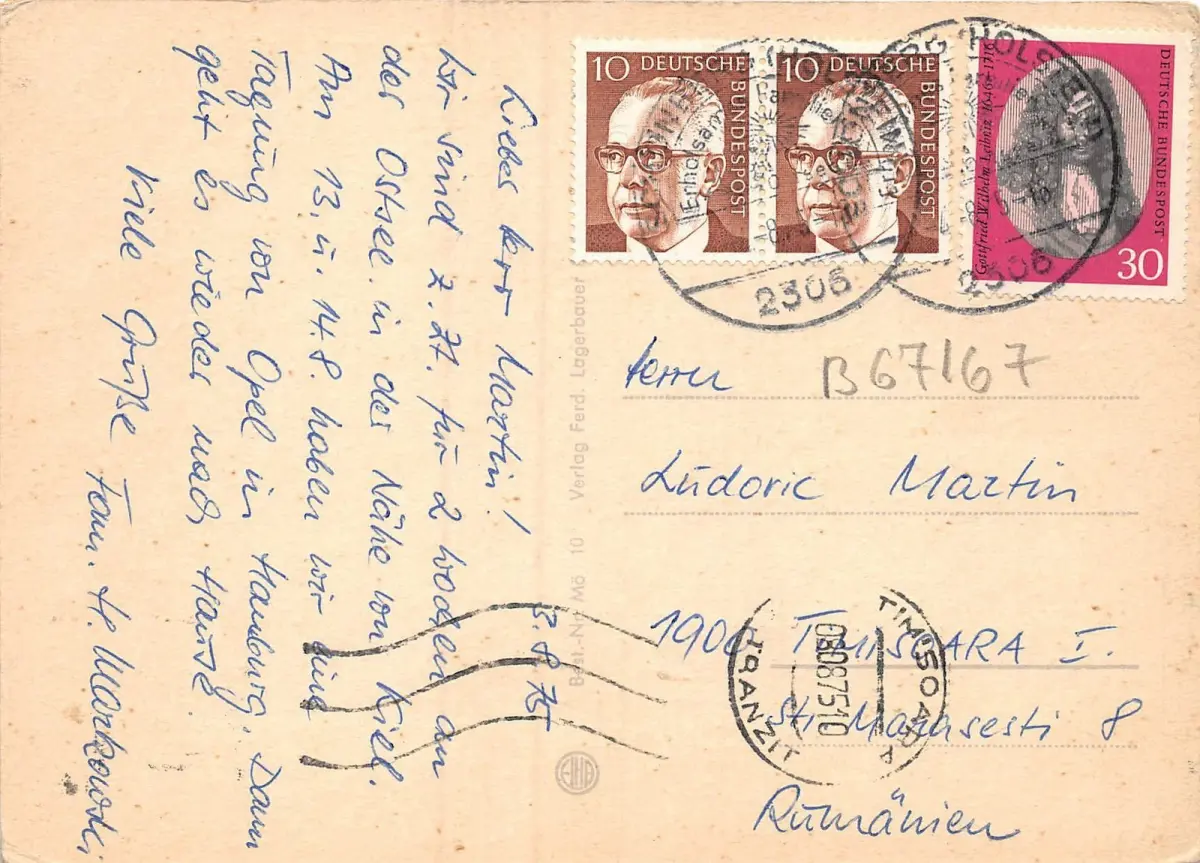 3.8.75
Lieber Herr Martin!
Wir sind z. Zt. für 2 Wochen an
der Ostsee in der Nähe von Kiel.
Am 13. u. 14.8. haben wir eine
Tagung von Opel in Hamburg. Dann
geht es wieder nach Hause.
Viele Grüße Fam. H. Markowski
10 DEUTSCHE BUNDESPOST
10 DEUTSCHE BUNDESPOST
Gottfried Wilhelm Leibniz 1646-1716
DEUTSCHE BUNDESPOST
30
HOLSTEIN
2306
2306
B67/67
Herrn
Ludovic Martin
1900 TIMISOARA I.
Str. Marasesti 8
Rumänien
TIMISOARA
08087510
TRANZIT
Best.-Nr. Mö 10 Verlag Ferd. Lagerbauer